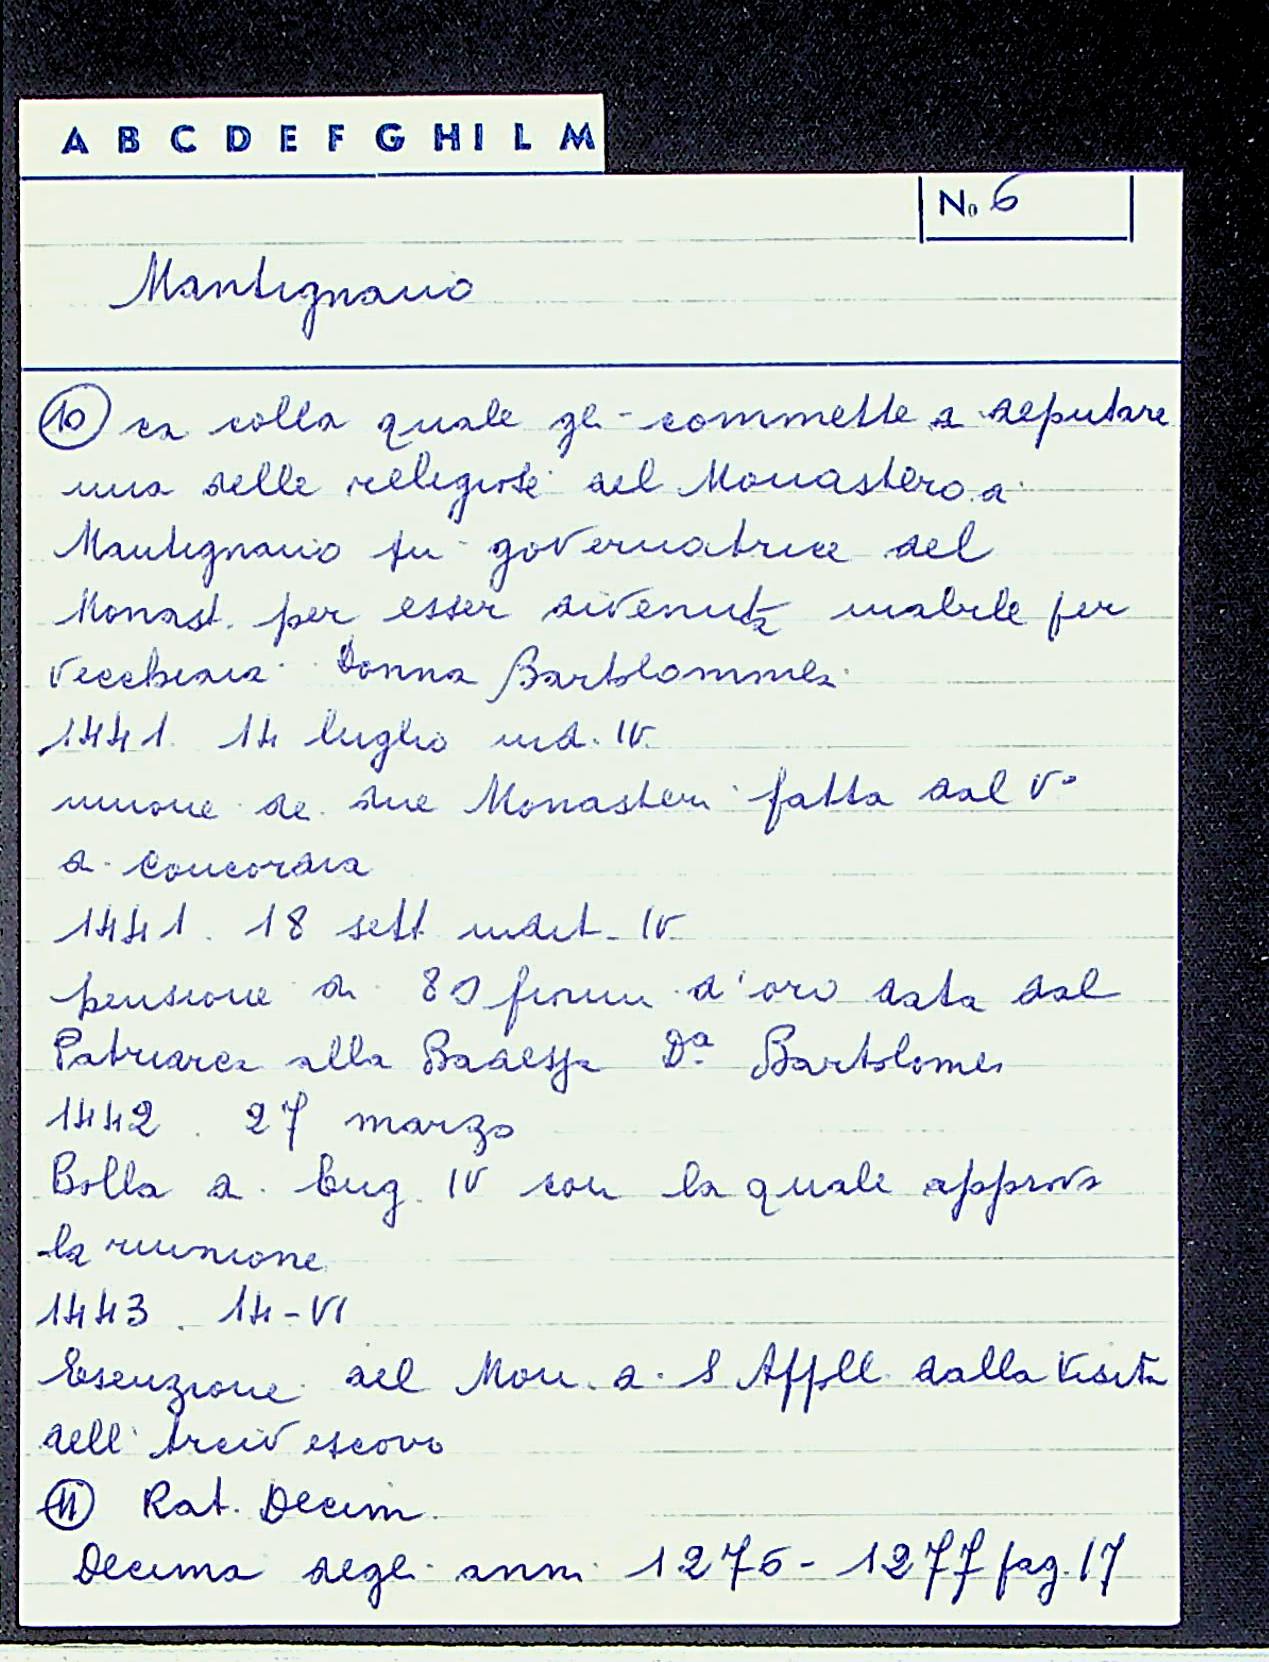 A B C D E F G H I L M
No 6
Mantignano
10 ca colla quale gli commette di deputare
una delle religiose del Monastero di
Mantignano in governatrice del
Monast. per esser divenuta inabile per
vecchiaia Donna Bartolommea
1441. 14 luglio ind. IV
unione dei due Monasteri fatta dal Vo
di Concordia
1441. 18 sett indit. IV
pensione di 80 fiorini d'oro data dal
Patriarca alla Badessa Da. Bartolomea
1442. 27 marzo
Bolla di Eug. IV con la quale approva
la riunione
1443. 14-VI
Esenzione del Mon. di S Appll dalla Visita
dell'Arcivescovo
11 Rat. Decim.
Decima degli anni 1276-1277 pag. 17